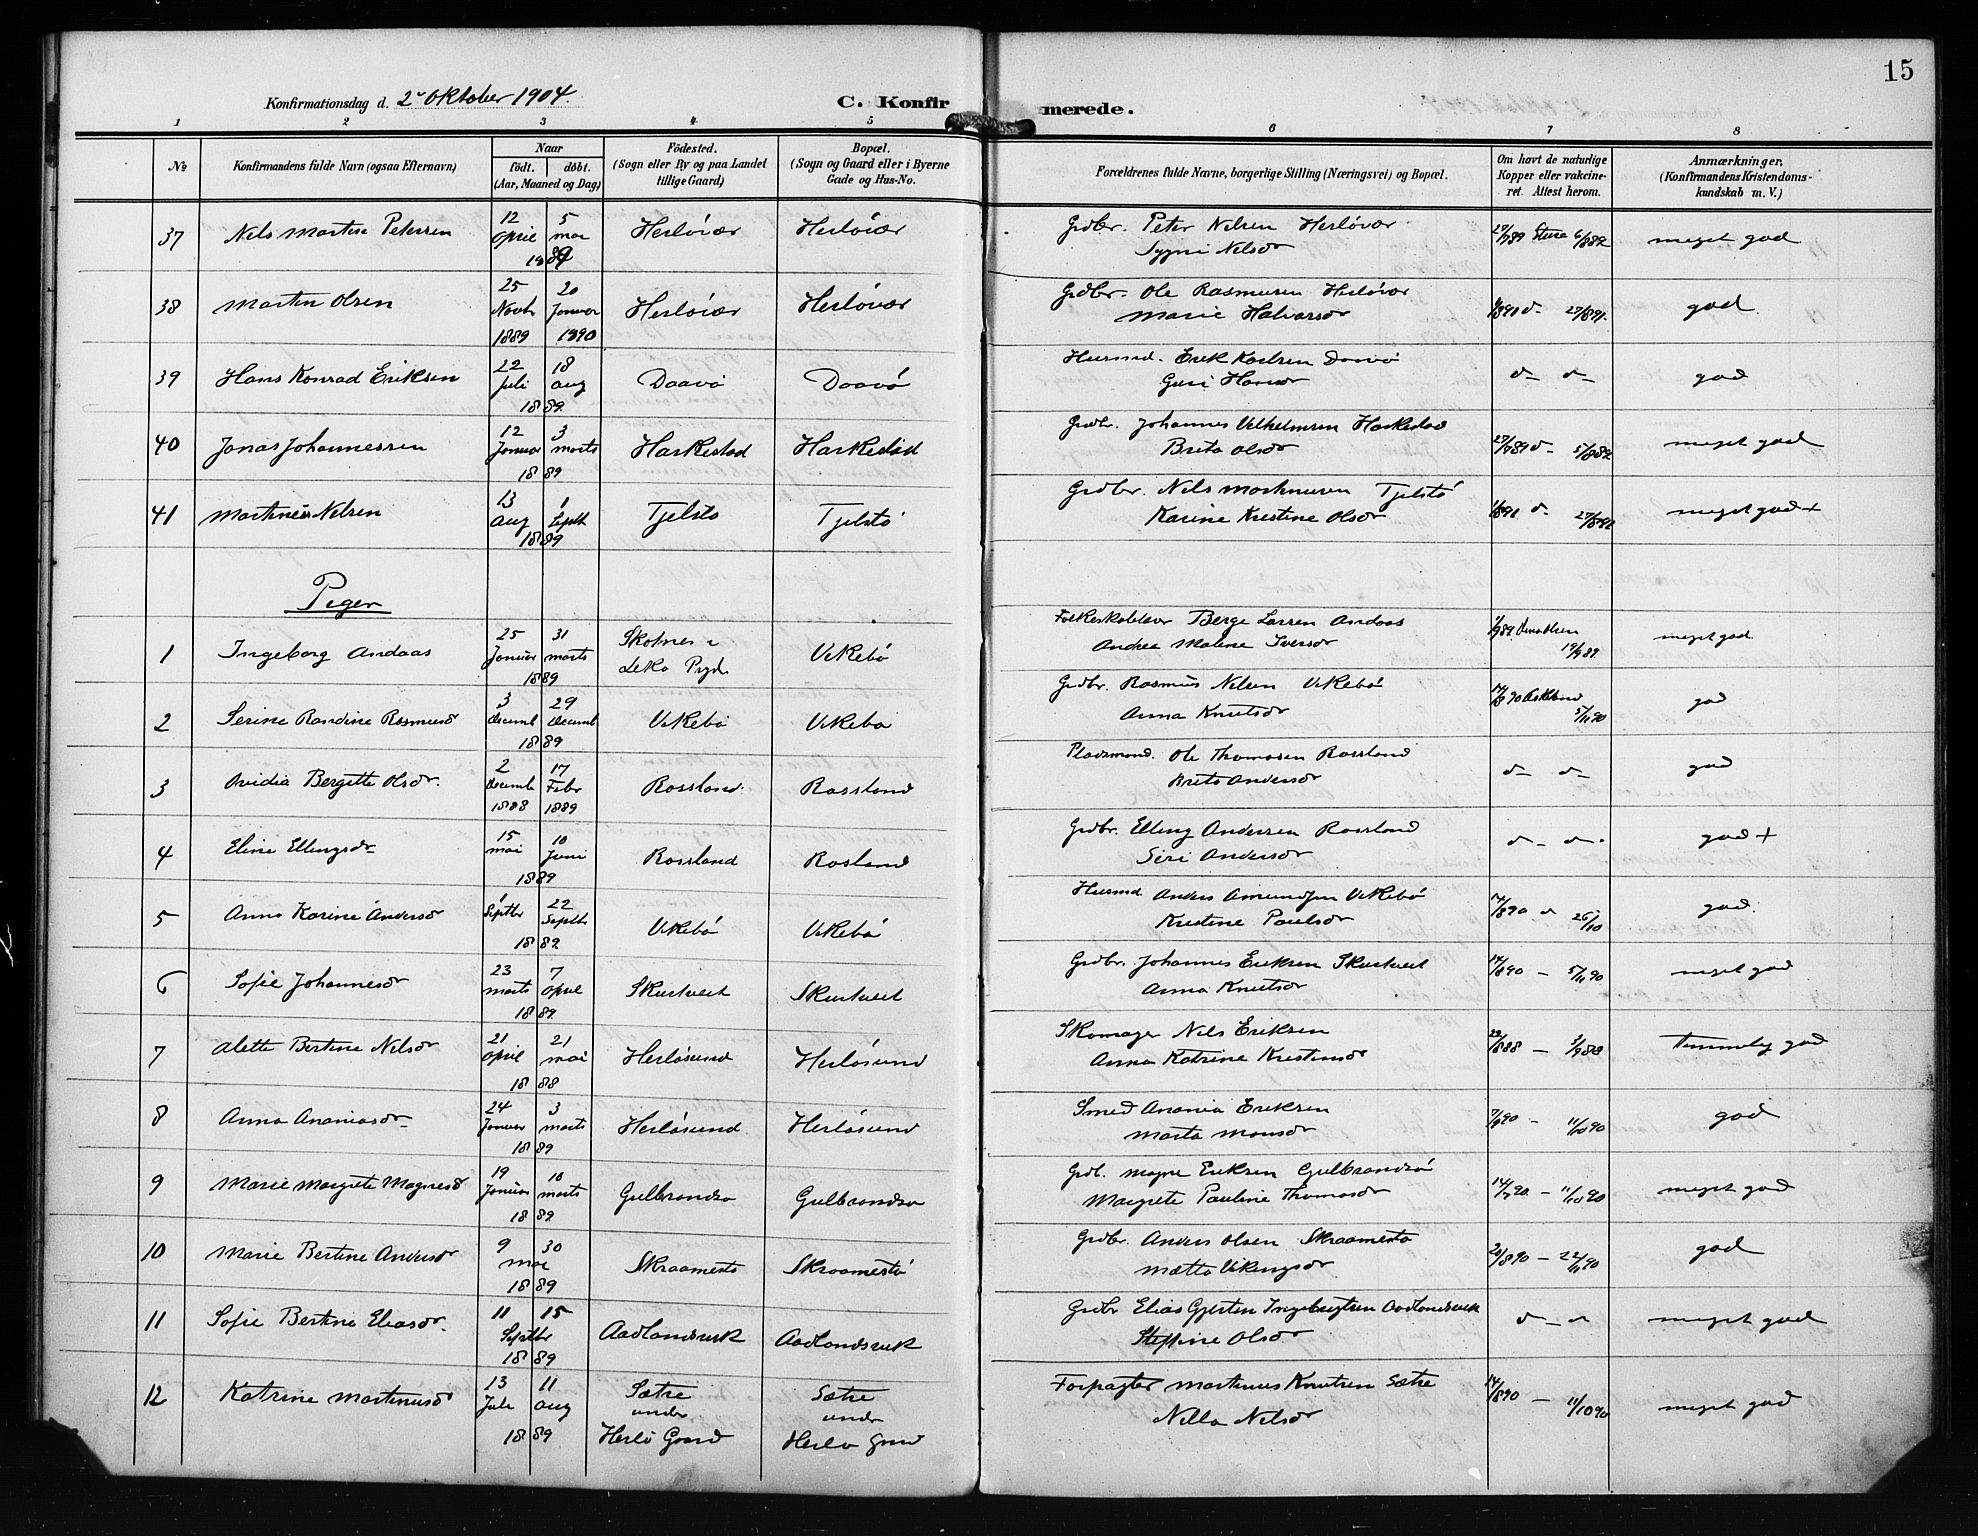 15
Konfirmationsdag d. 2 Oktober 1904.
C. Konfirmerede.
1 2 3 4 5 6 7 8
No
Konfirmandens fulde Navn (ogsaa Efternavn)
Naar
födt. döbt.
(Aar, Maaned og Dag)
Födested.
(Sogn eller By og paa Landet
tillige Gaard)
Bopæl.
(Sogn og Gaard eller i Byerne
Gade og Hus-No.
Forældrenes fulde Navne, borgerlige Stilling (Næringsvei) og Bopæl.
Om havt de naturlige
Kopper eller vakcine-
ret. Attest herom.
Anmærkninger,
(Konfirmandens Kristendoms-
kundskab m. V.)
37 Nels Martin Petersen 12 April 5 mai 1889 Herløvær Herløvær Grdbr. Peter Nelsen Herløvær
Sygni Nelsdr meget god
38 Martin Olsen 25 Novbr 1889 20 Januar 1890 Herløvær Herløvær Grdbr. Ole Rasmusen Herløvær
Marie Halvarsdr god
39 Hans Konrad Eriksen 22 Juli 18 aug 1889 Daavø Daavø Husmd. Erik Karlsen Daavø
Guri Hansdr d- d- god
40 Jonas Johannessen 12 Januar 3 marts 1889 Harkestad Harkestad Grdbr. Johannes Velhelmsen Harkestad
Brita Olsdr meget god
41 Martines Nelsen 13 aug 1 Septb 1889 Tjelstø Tjelstø Grdbr. Nels Martinusen Tjelstø
Karine Kristine Olsdr meget god +
Peger
1 Ingeborg Andaas 25 Januar 31 marts 1889 Skotnes i
Leka Prgd. Vikebø Folkeskolelærer Berge Larsen Andaas
Andrea Malene Iversdr meget god
2 Serine Randine Rasmusdr 3 Decemb 29 Decemb 1889 Vikebø Vikebø Grdbr. Rasmus Nelsen Vikebø
Anna Knutsdr god
3 Ovidia Bergitte Olsdr. 2 Decemb 1888 17 Febr 1889 Rossland Rossland Pladsmand. Ole Thomasen Rossland
Brita Andersdr d- d- god
4 Eline Ellingsdr 15 mai 10 Juni 1889 Rossland Rosland Grdbr. Elling Andersen Rossland
Siri Andersdr d- d- god +
5 Anna Karine Andersdr 1 Septbr 22 Septbr 1889 Vikebø Vikebø Husmd Anders Amundsen Vikebø
Kristine Paulsdr god
6 Sofie Johannesdr 23 marts 7 April 1889 Skurtveit Skurtveit Grdbr. Johannes Eriksen Skurtveit
Anna Knutsdr meget god
7 Alette Bertine Nelsdr 21 April 21 mai 1888 Herløsund Herløsund Skomager Nils Eriksen
Anna Katrine Kristensdr temmelig god
8 Anna Ananiasdr 24 Januar 3 marts 1889 Herløsund Herløsund Smed Anania Eriksen
Marta Monsdr god
9 Marie Margrete Magnesdr 19 Januar 10 marts 1889 Gulbrandsø Gulbrandsø Grdb. Magne Eriksen Gulbrandsø
Margrete Pauline Thomasdr meget god
10 Marie Bertine Andersdr 9 30 mai 1889 Skraamestø Skraamestø Grdbr. Anders Olsen Skraamestø
Mætta Vikingsdr god
11 Sofie Bertine Eliasdr. 11 15 Septbr 1889 Aadlandsvik Aadlandsvik Grdbr Elias Gjertin Ingebrigtsen Aadlandsvik
Steffine Olsdr d- d- meget god
12 Katrine Martinusdr 13 Juli 11 aug 1889 Sætre
under
Herlø Gaard Sætre
under
Herlø Gaard Forpagter Martinus Knutsen Sætre
Nilla Nelsdr meget god